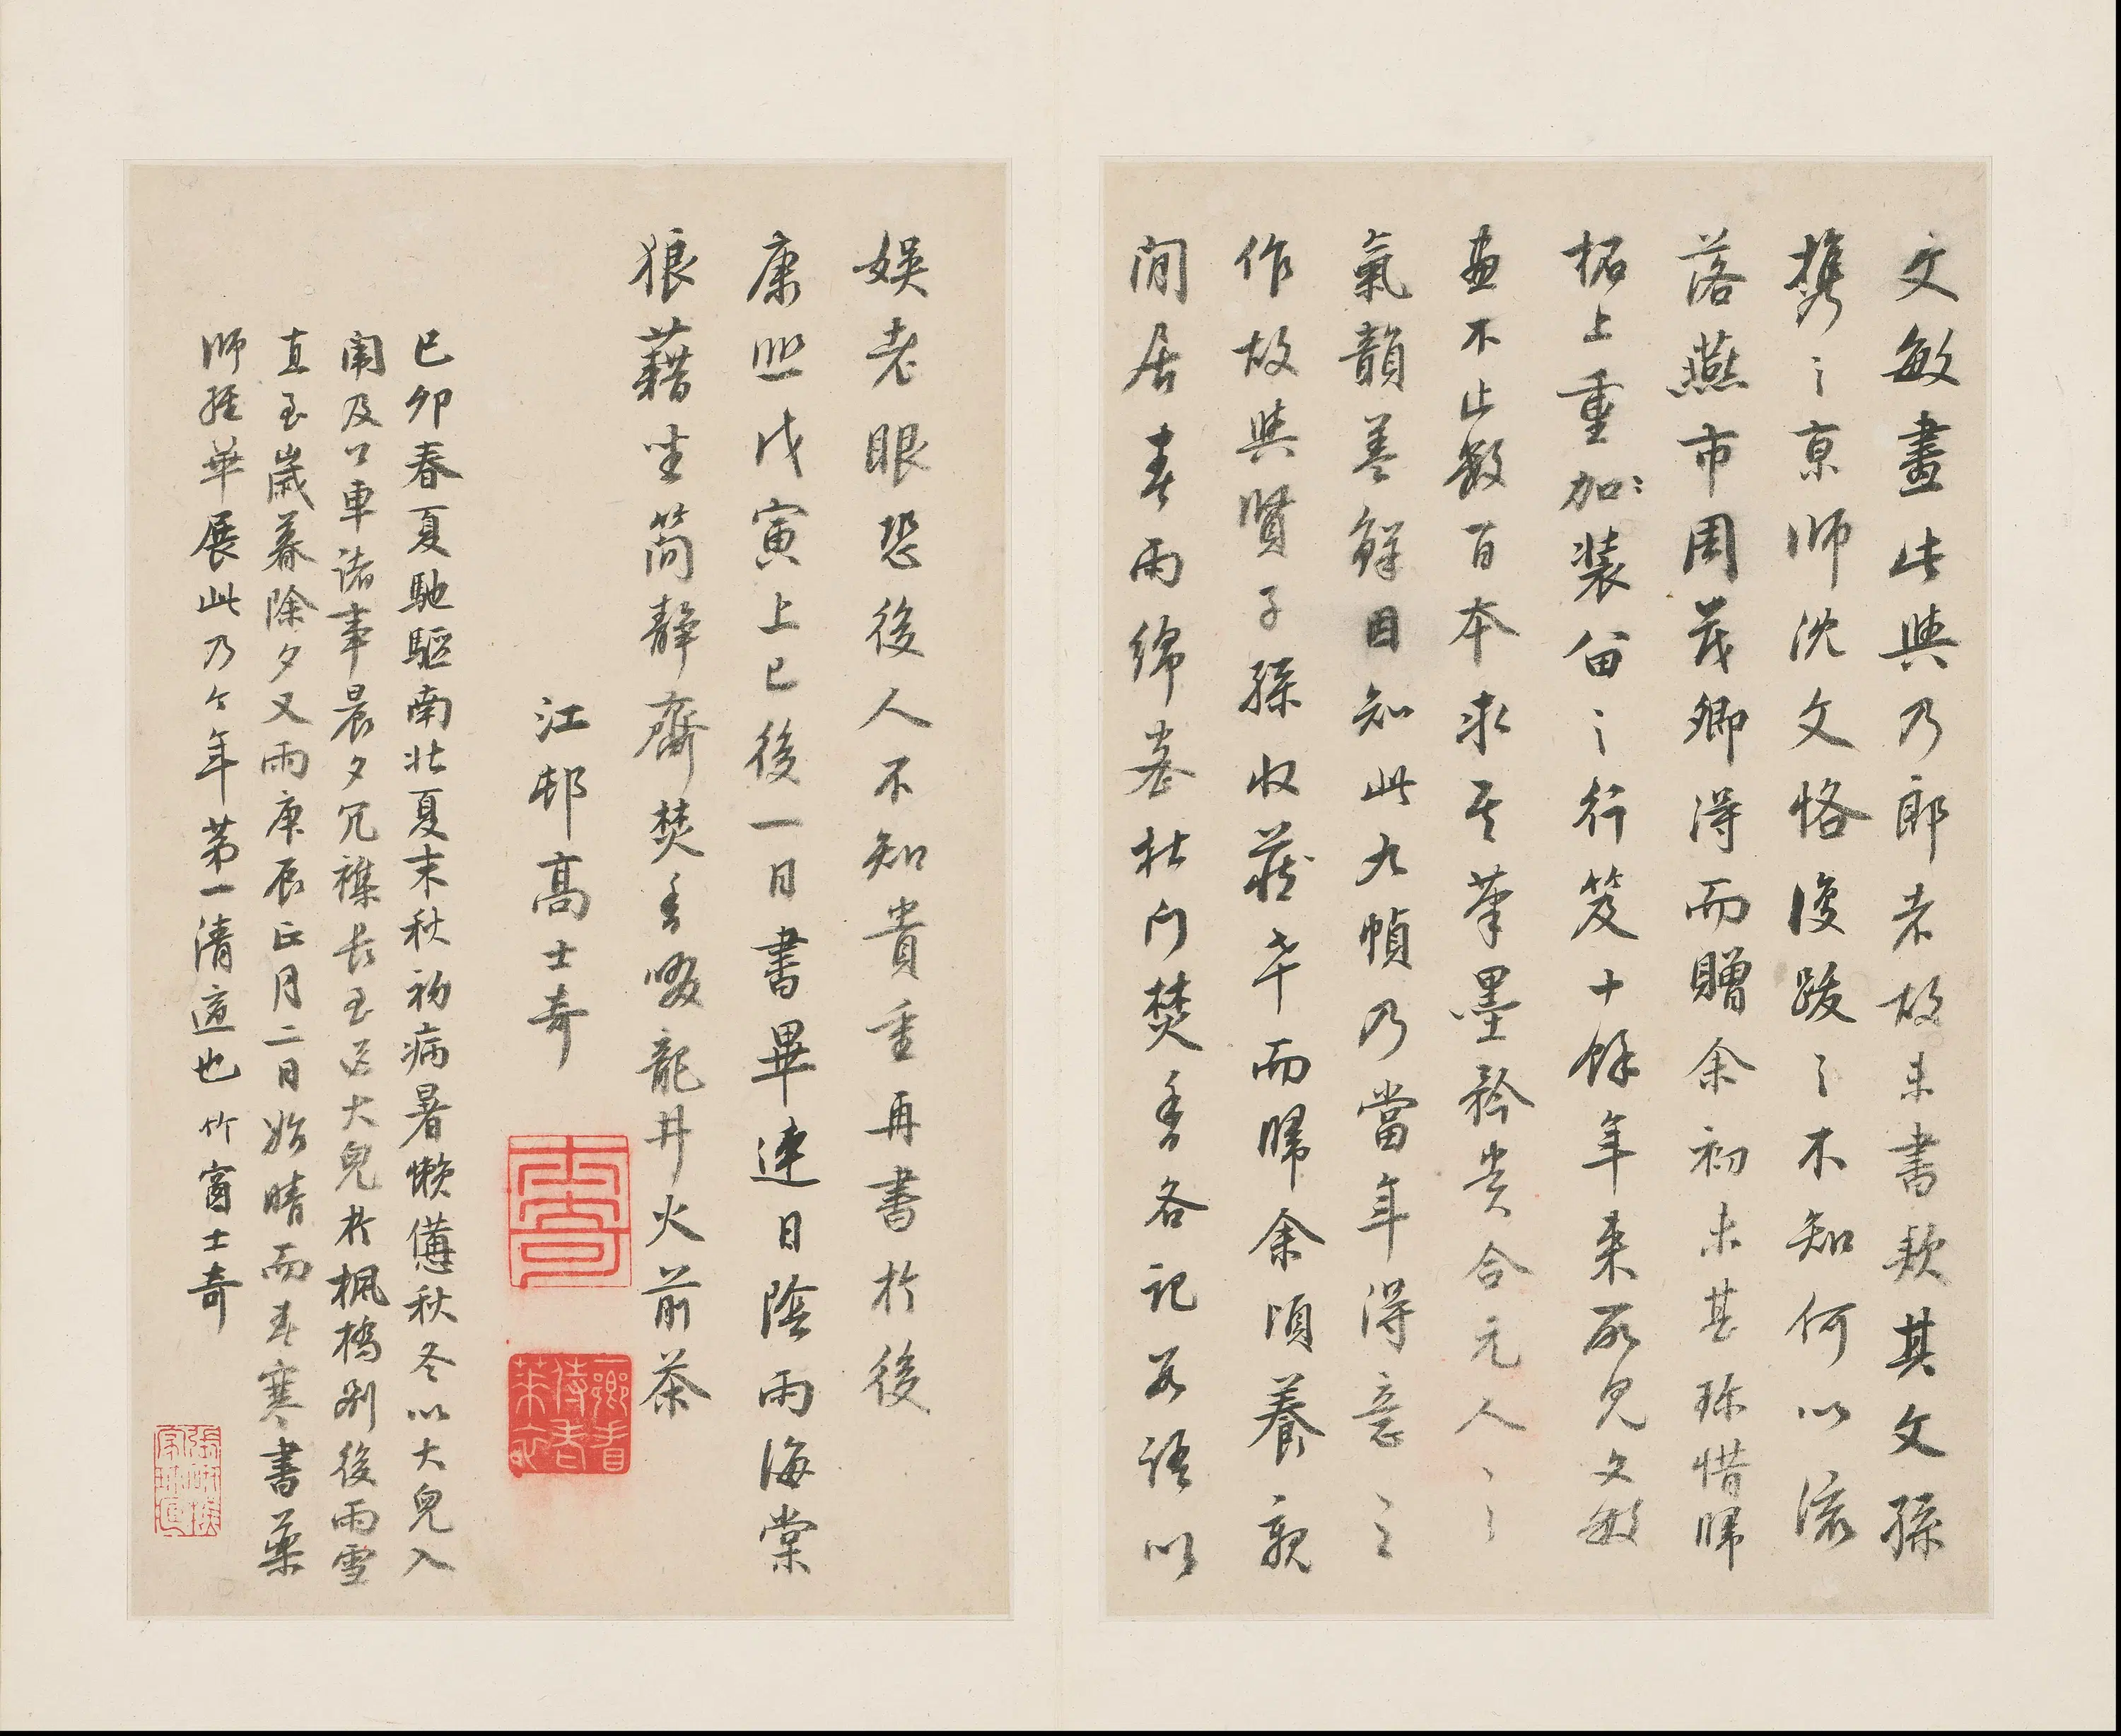 文敏畫此與乃郎者故未書款其文孫
攜之京師沈文恪復跋之不知何以流
落燕市周茂卿得而贈余初未甚珍惜歸
柘上重加〻裝留之行笈十餘年來所見文敏
畫不止數百本求其筆墨矜貴合元人之
氣韻甚鮮因知此九幀乃當年得意之
作故與賢子孫收藏幸而歸余頃養親
閒居春雨綿蠻杜門焚香各記數語以
娛老眼恐後人不知貴重再書於後
康熙戊寅上巳後一日書畢連日陰雨海棠
狼藉坐簡靜齋焚香啜龍井火前茶
江邨高士奇
己卯春夏馳驅南北夏末秋初病暑懶憊秋冬以大兒入
闈及公車諸事晨夕冗襍長至送大兒於楓橋別後雨雪
直至歲暮除夕又雨庚辰正月二日始晴而春寒書藥
師經畢展此乃今年第一清適也 竹窗士奇
士奇